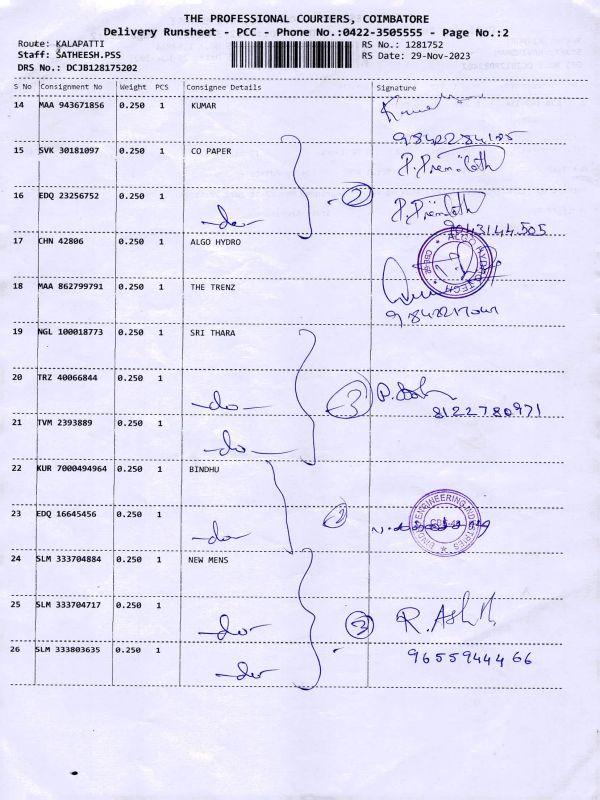 THE PROFESSIONAL COURIERS, COIMBATORE
Delivery Runsheet - PCC - Phone No.:0422-3505555 - Page No.:2
Route: KALAPATTI RS No.: 1281752
Staff: SATHEESH.PSS RS Date: 29-Nov-2023
DRS No.: DCJB128175202
S No Consignment No Weight PCS Consignee Details Signature
14 MAA 943671856 0.250 1 KUMAR
15 SVK 30181097 0.250 1 CO PAPER P. Premilath
16 EDQ 23256752 0.250 1 -do- 2 P. Premilath
9043144505
17 CHN 42806 0.250 1 ALGO HYDRO ALGO HYDRO TECH
18 MAA 862799791 0.250 1 THE TRENZ
19 NGL 100018773 0.250 1 SRI THARA
20 TRZ 40066844 0.250 1 -do- 3
8122780971
21 TVM 2393889 0.250 1 -do-
22 KUR 7000494964 0.250 1 BINDHU
23 EDQ 16645456 0.250 1 -do- 2 ENGINEERING INDUSTRIES
24 SLM 333704884 0.250 1 NEW MENS
25 SLM 333704717 0.250 1 -do- 3
26 SLM 333803635 0.250 1 -do- 9655944466